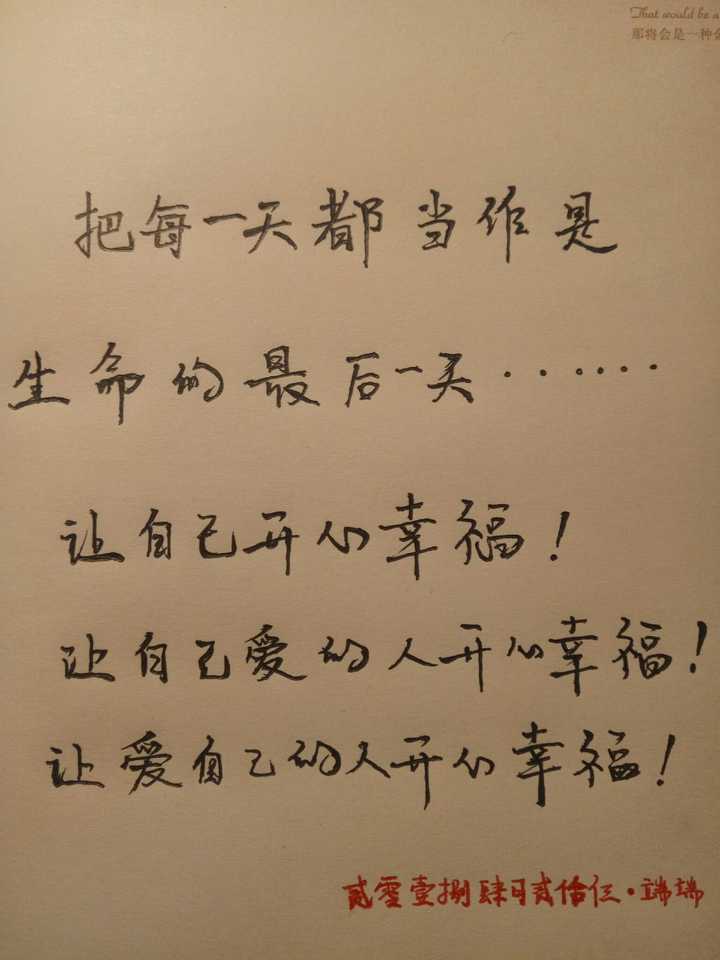 That would be a
那将会是一种
把每一天都当作是
生命的最后一天·······
让自己开心幸福！
让自己爱的人开心幸福！
让爱自己的人开心幸福！
贰零壹捌肆月贰拾仨·端端